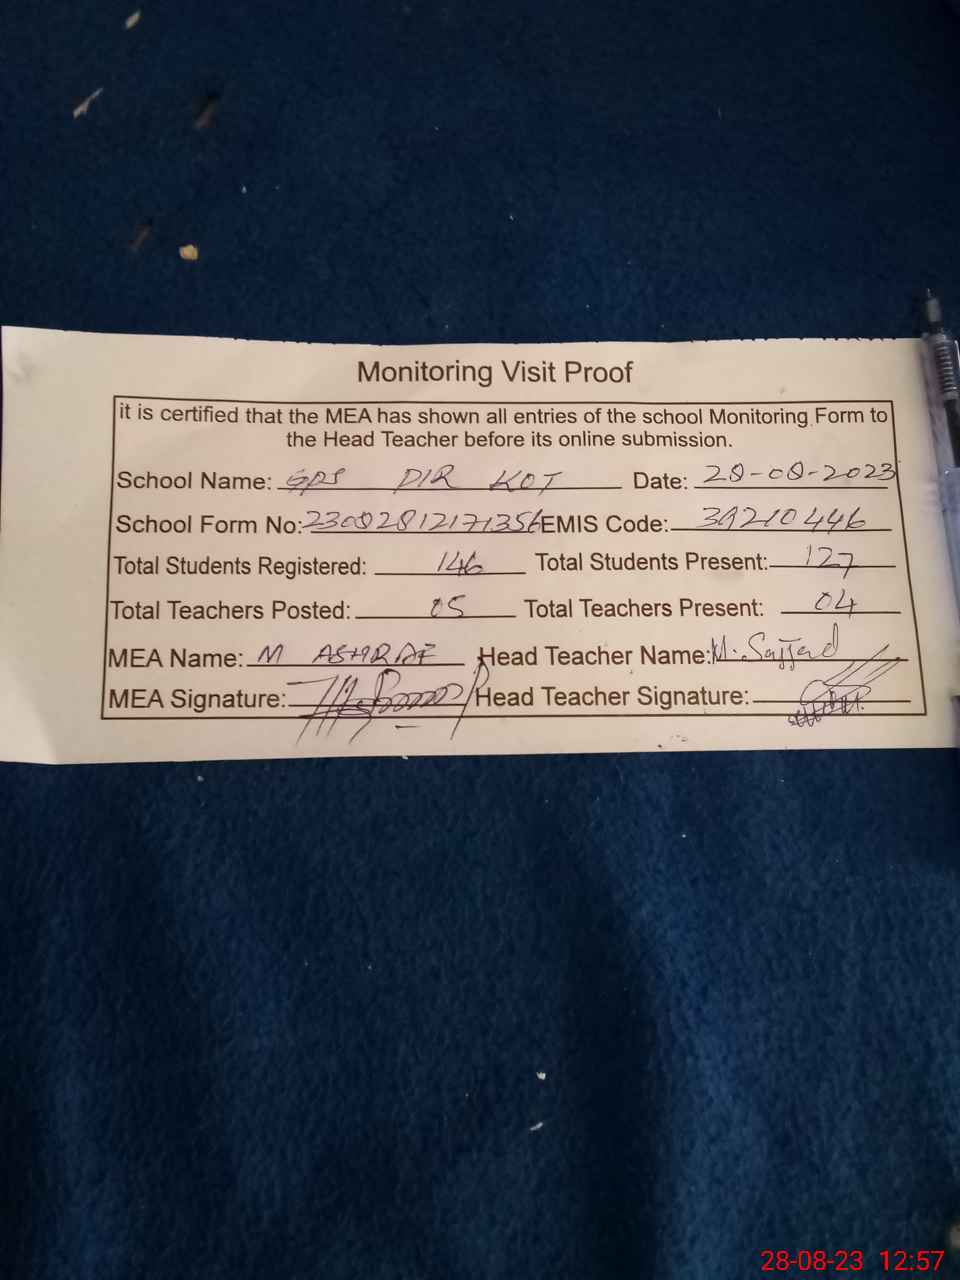 Monitoring Visit Proof
it is certified that the MEA has shown all entries of the school Monitoring Form to
the Head Teacher before its online submission.
School Name: GPS DIR KOT Date: 28-08-2023
School Form No: 23082812171356 EMIS Code: 39210446
Total Students Registered: 146 Total Students Present: 127
Total Teachers Posted: 05 Total Teachers Present: 04
MEA Name: M ASHRAF Head Teacher Name: M. Sajjad
MEA Signature: Head Teacher Signature:
28-08-23 12:57